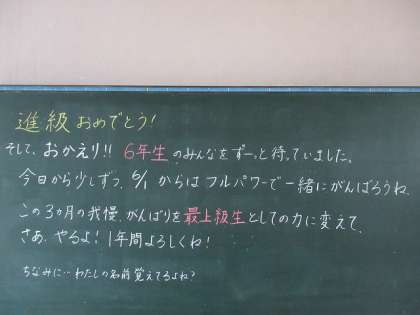 進級おめでとう!
そして、おかえり!! 6年生のみんなをずーっと待っていました。
今日から少しずつ、6/1からはフルパワーで一緒にがんばろうね。
この3カ月の我慢、がんばりを最上級生としての力に変えて、
さあ、やるよ!1年間よろしくね!
ちなみに…わたしの名前覚えてるよね?